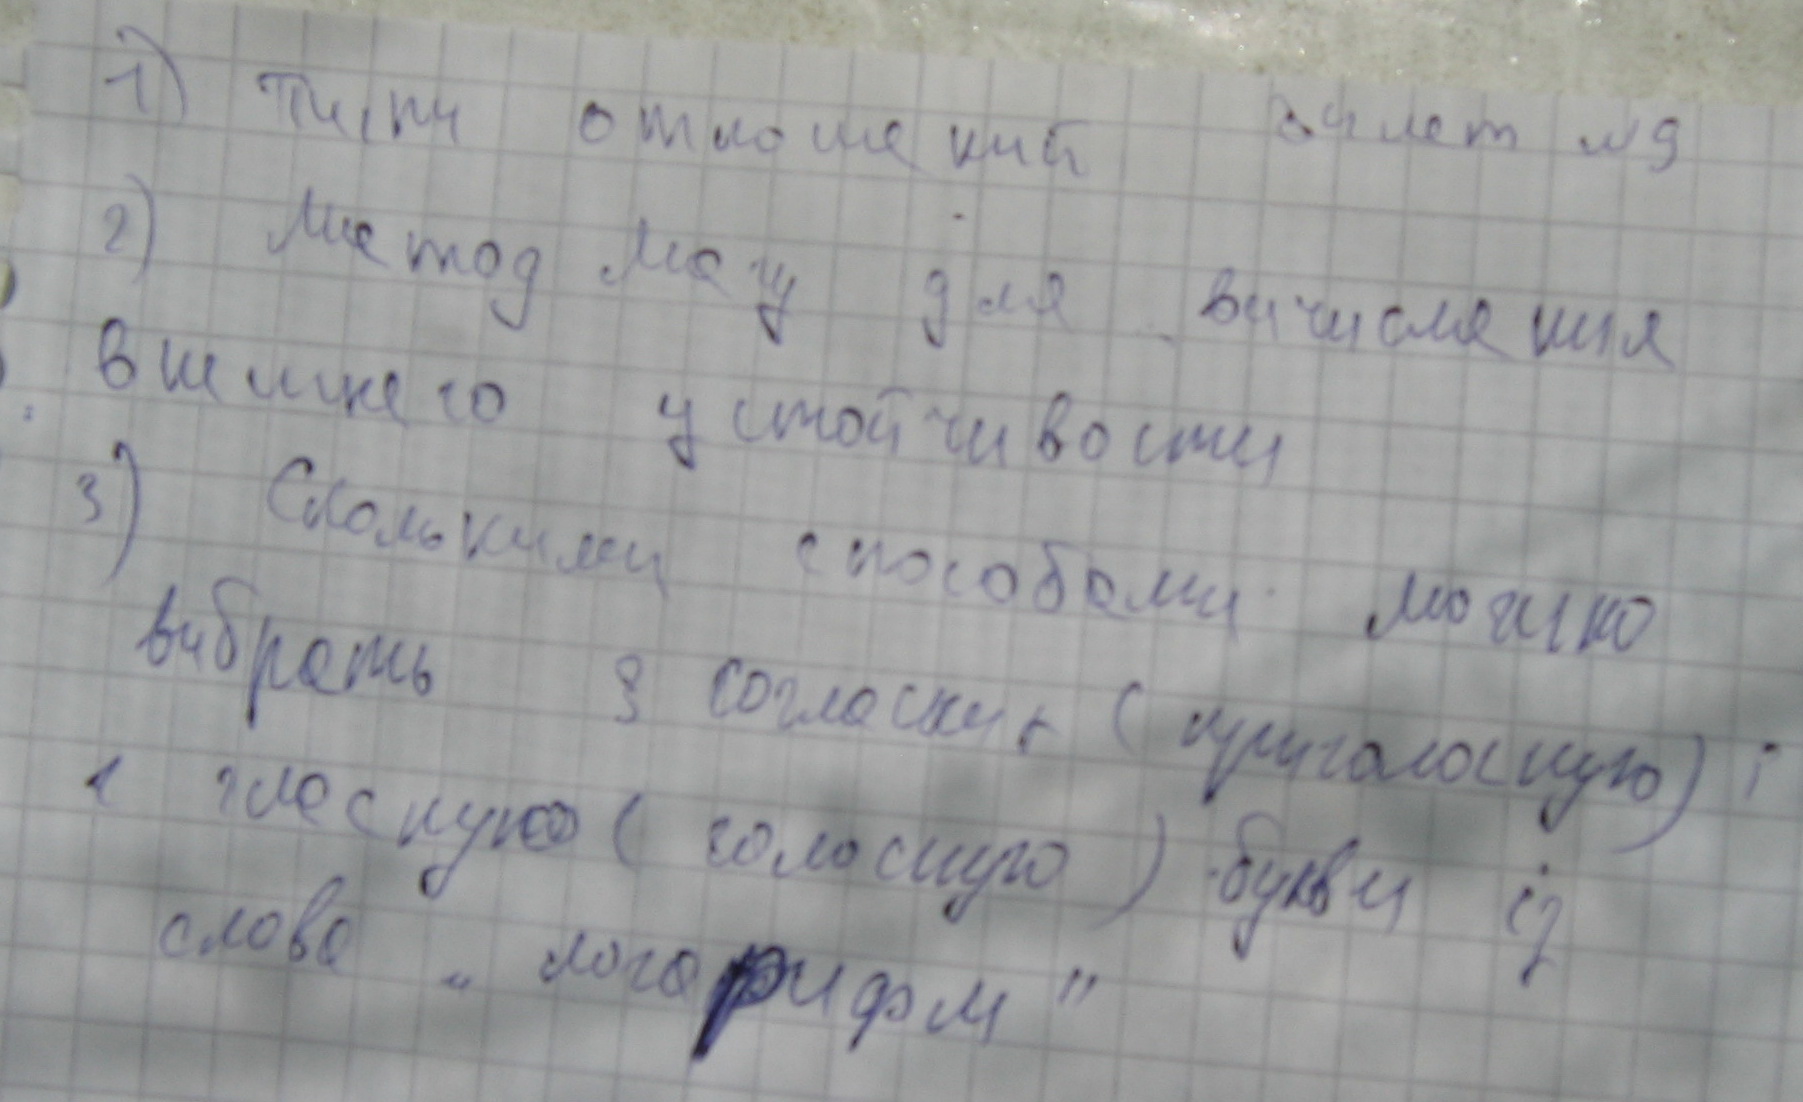 1) Типи отношений билет №9
2) Метод Магу для вичисления
внешнего устойчивости
3) Сколькими способами можно
вибрать 3 согласних (приголосную) і
1 гласную (голосную) букви із
слова „логарифм"